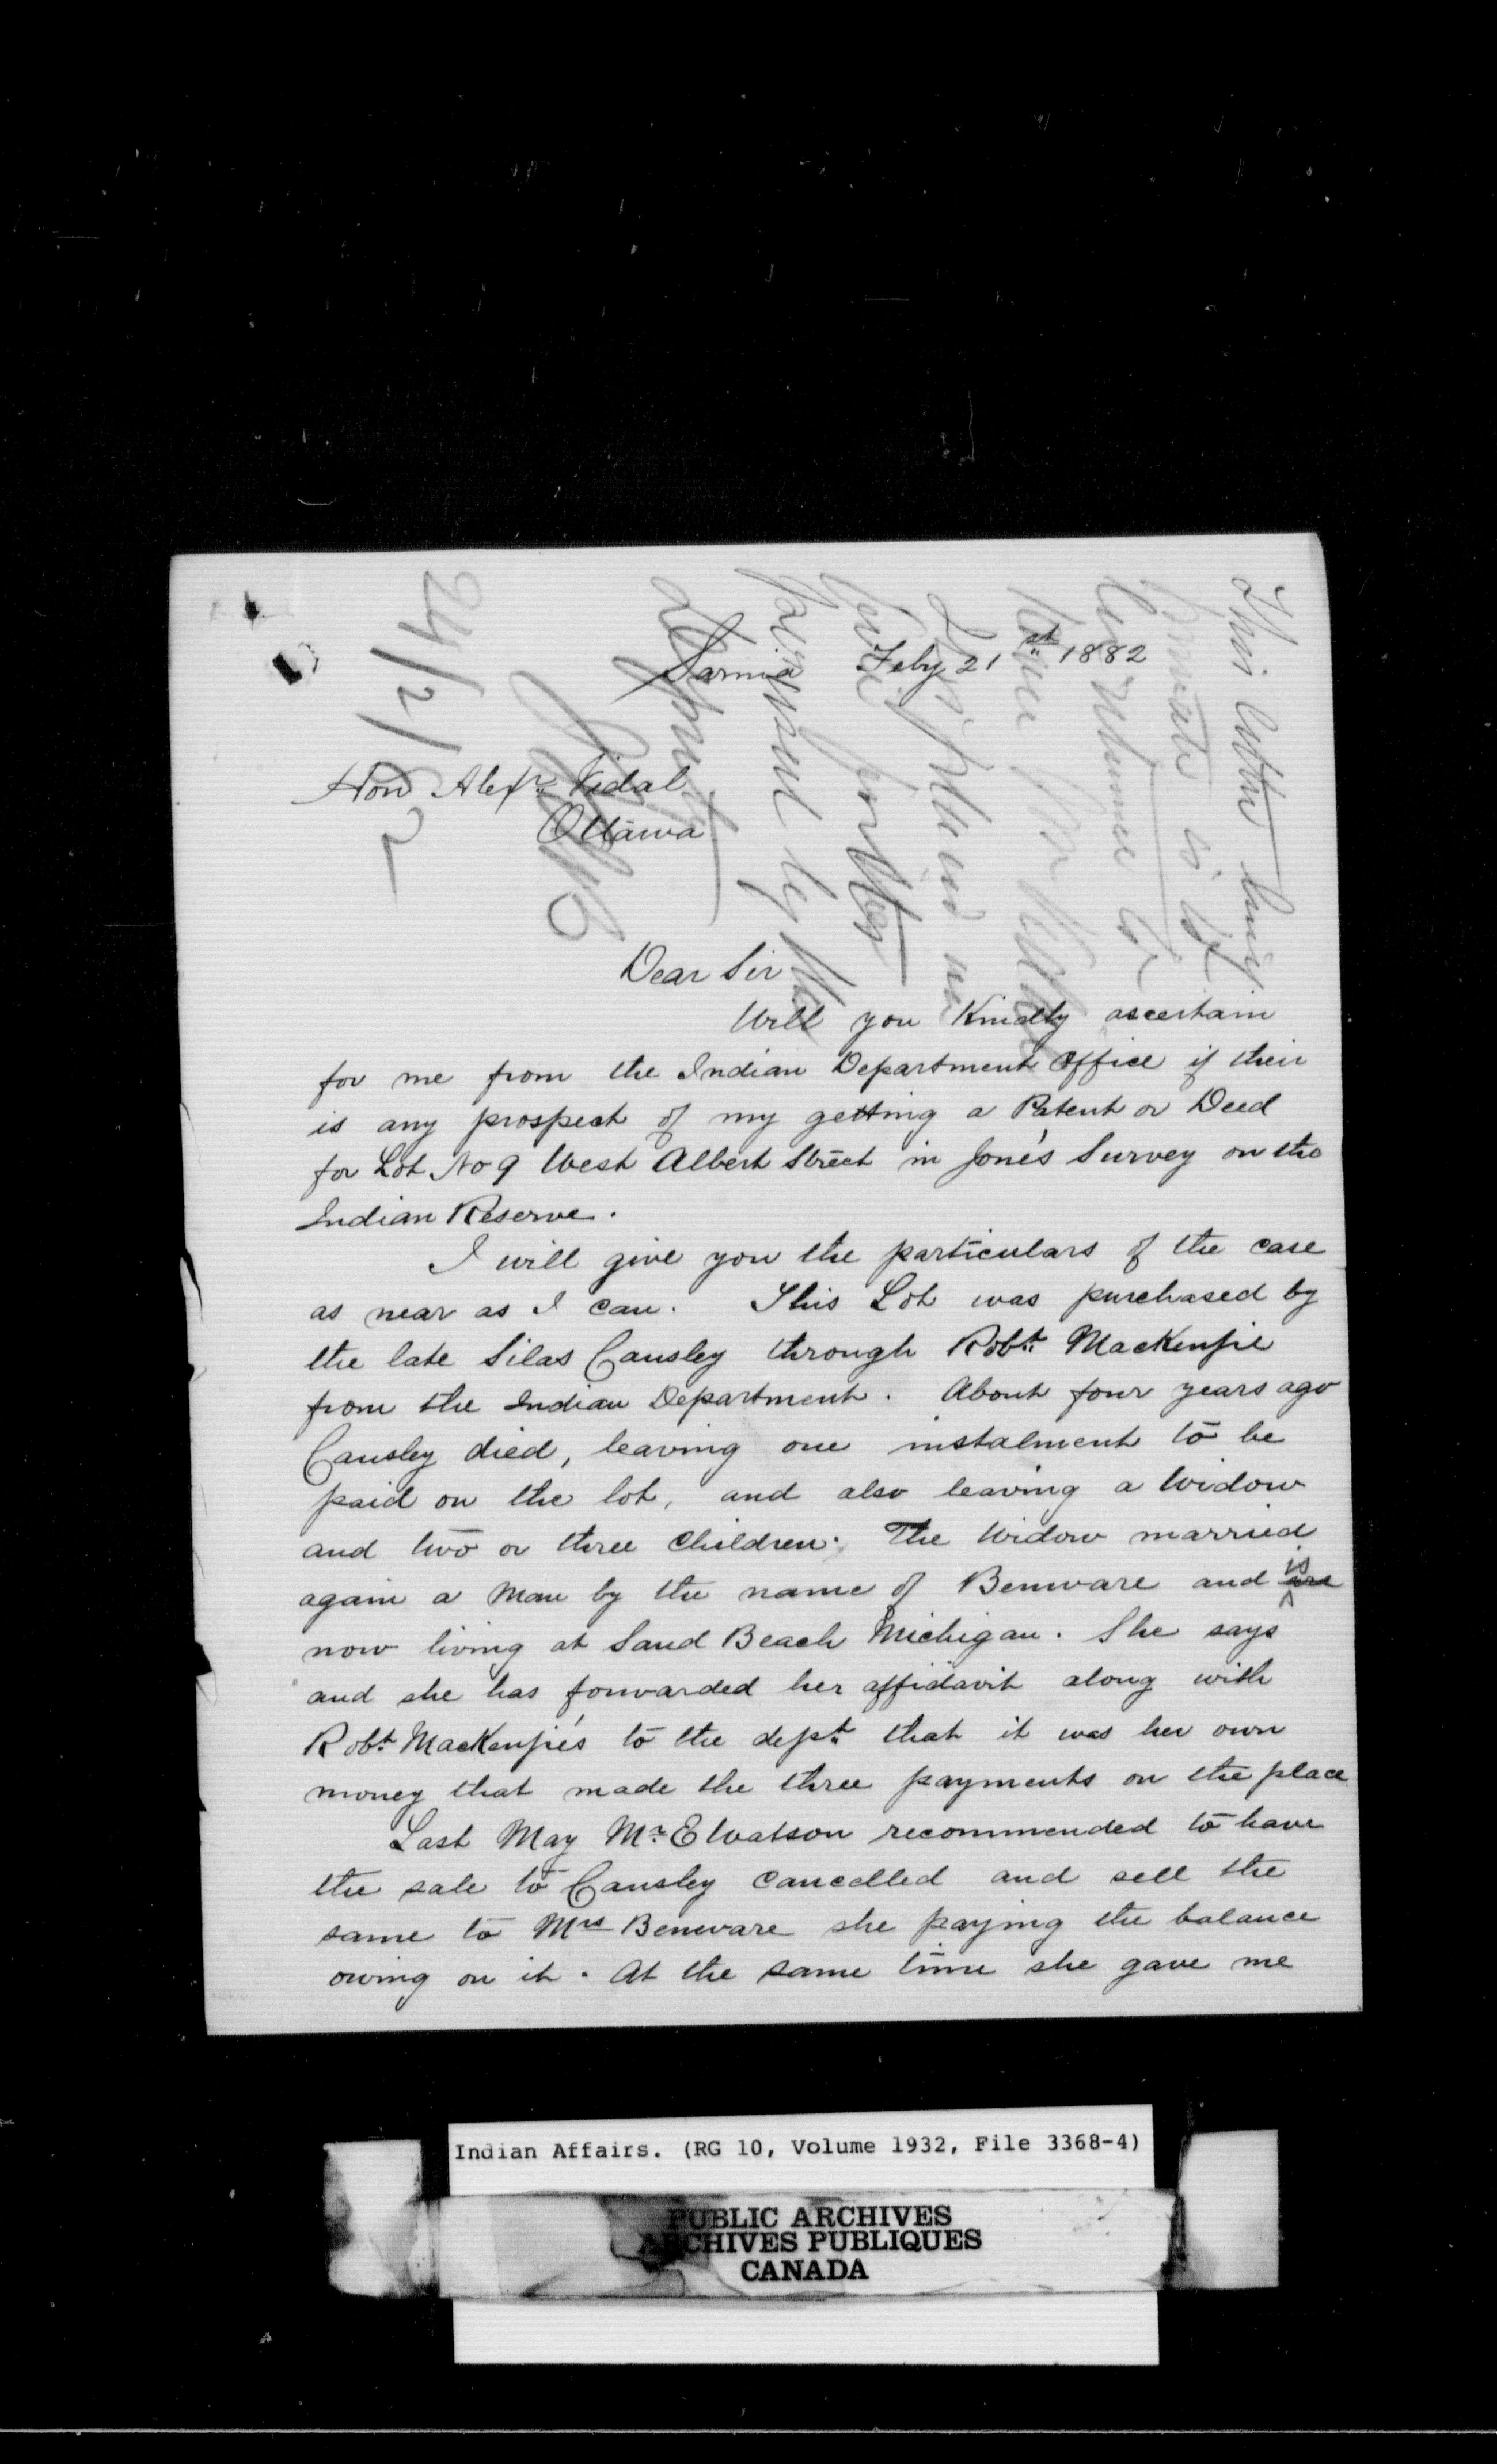 Sarnia Feby 21st 1882
Hon Alexr Vidal
Ottawa
Dear Sir
Will you Kindly ascertain
for me from the Indian Department Office if their
is any prospect of my getting a Patent or Deed
for Lot No 9 West Albert Street in Jone's Survey on the
Indian Reserve.
I will give you the particulars of the case
as near as I can. This Lot was purchased by
the late Silas Cansley through Robt. MacKenzie
from the Indian Department. About four years ago
Cansley died, leaving one instalment to be
paid on the lot, and also leaving a Widow
and two or three Children. The Widow married
again a Man by the name of Benware and is are
now living at Sand Beach Michigan. She says
and she has forwarded her affidavit along with
Robt MacKenzie's to the dept. that it was her own
money that made the three payments on the place
Last May Mr. E Watson recommended to have
the sale to Cansley Cancelled and sell the
same to Mrs Benware she paying the balance
owing on it. At the same time she gave me
This letter being
private is to
be returned to
24/2/82
Indian Affairs. (RG 10, Volume 1932, File 3368-4)
PUBLIC ARCHIVES
ARCHIVES PUBLIQUES
CANADA